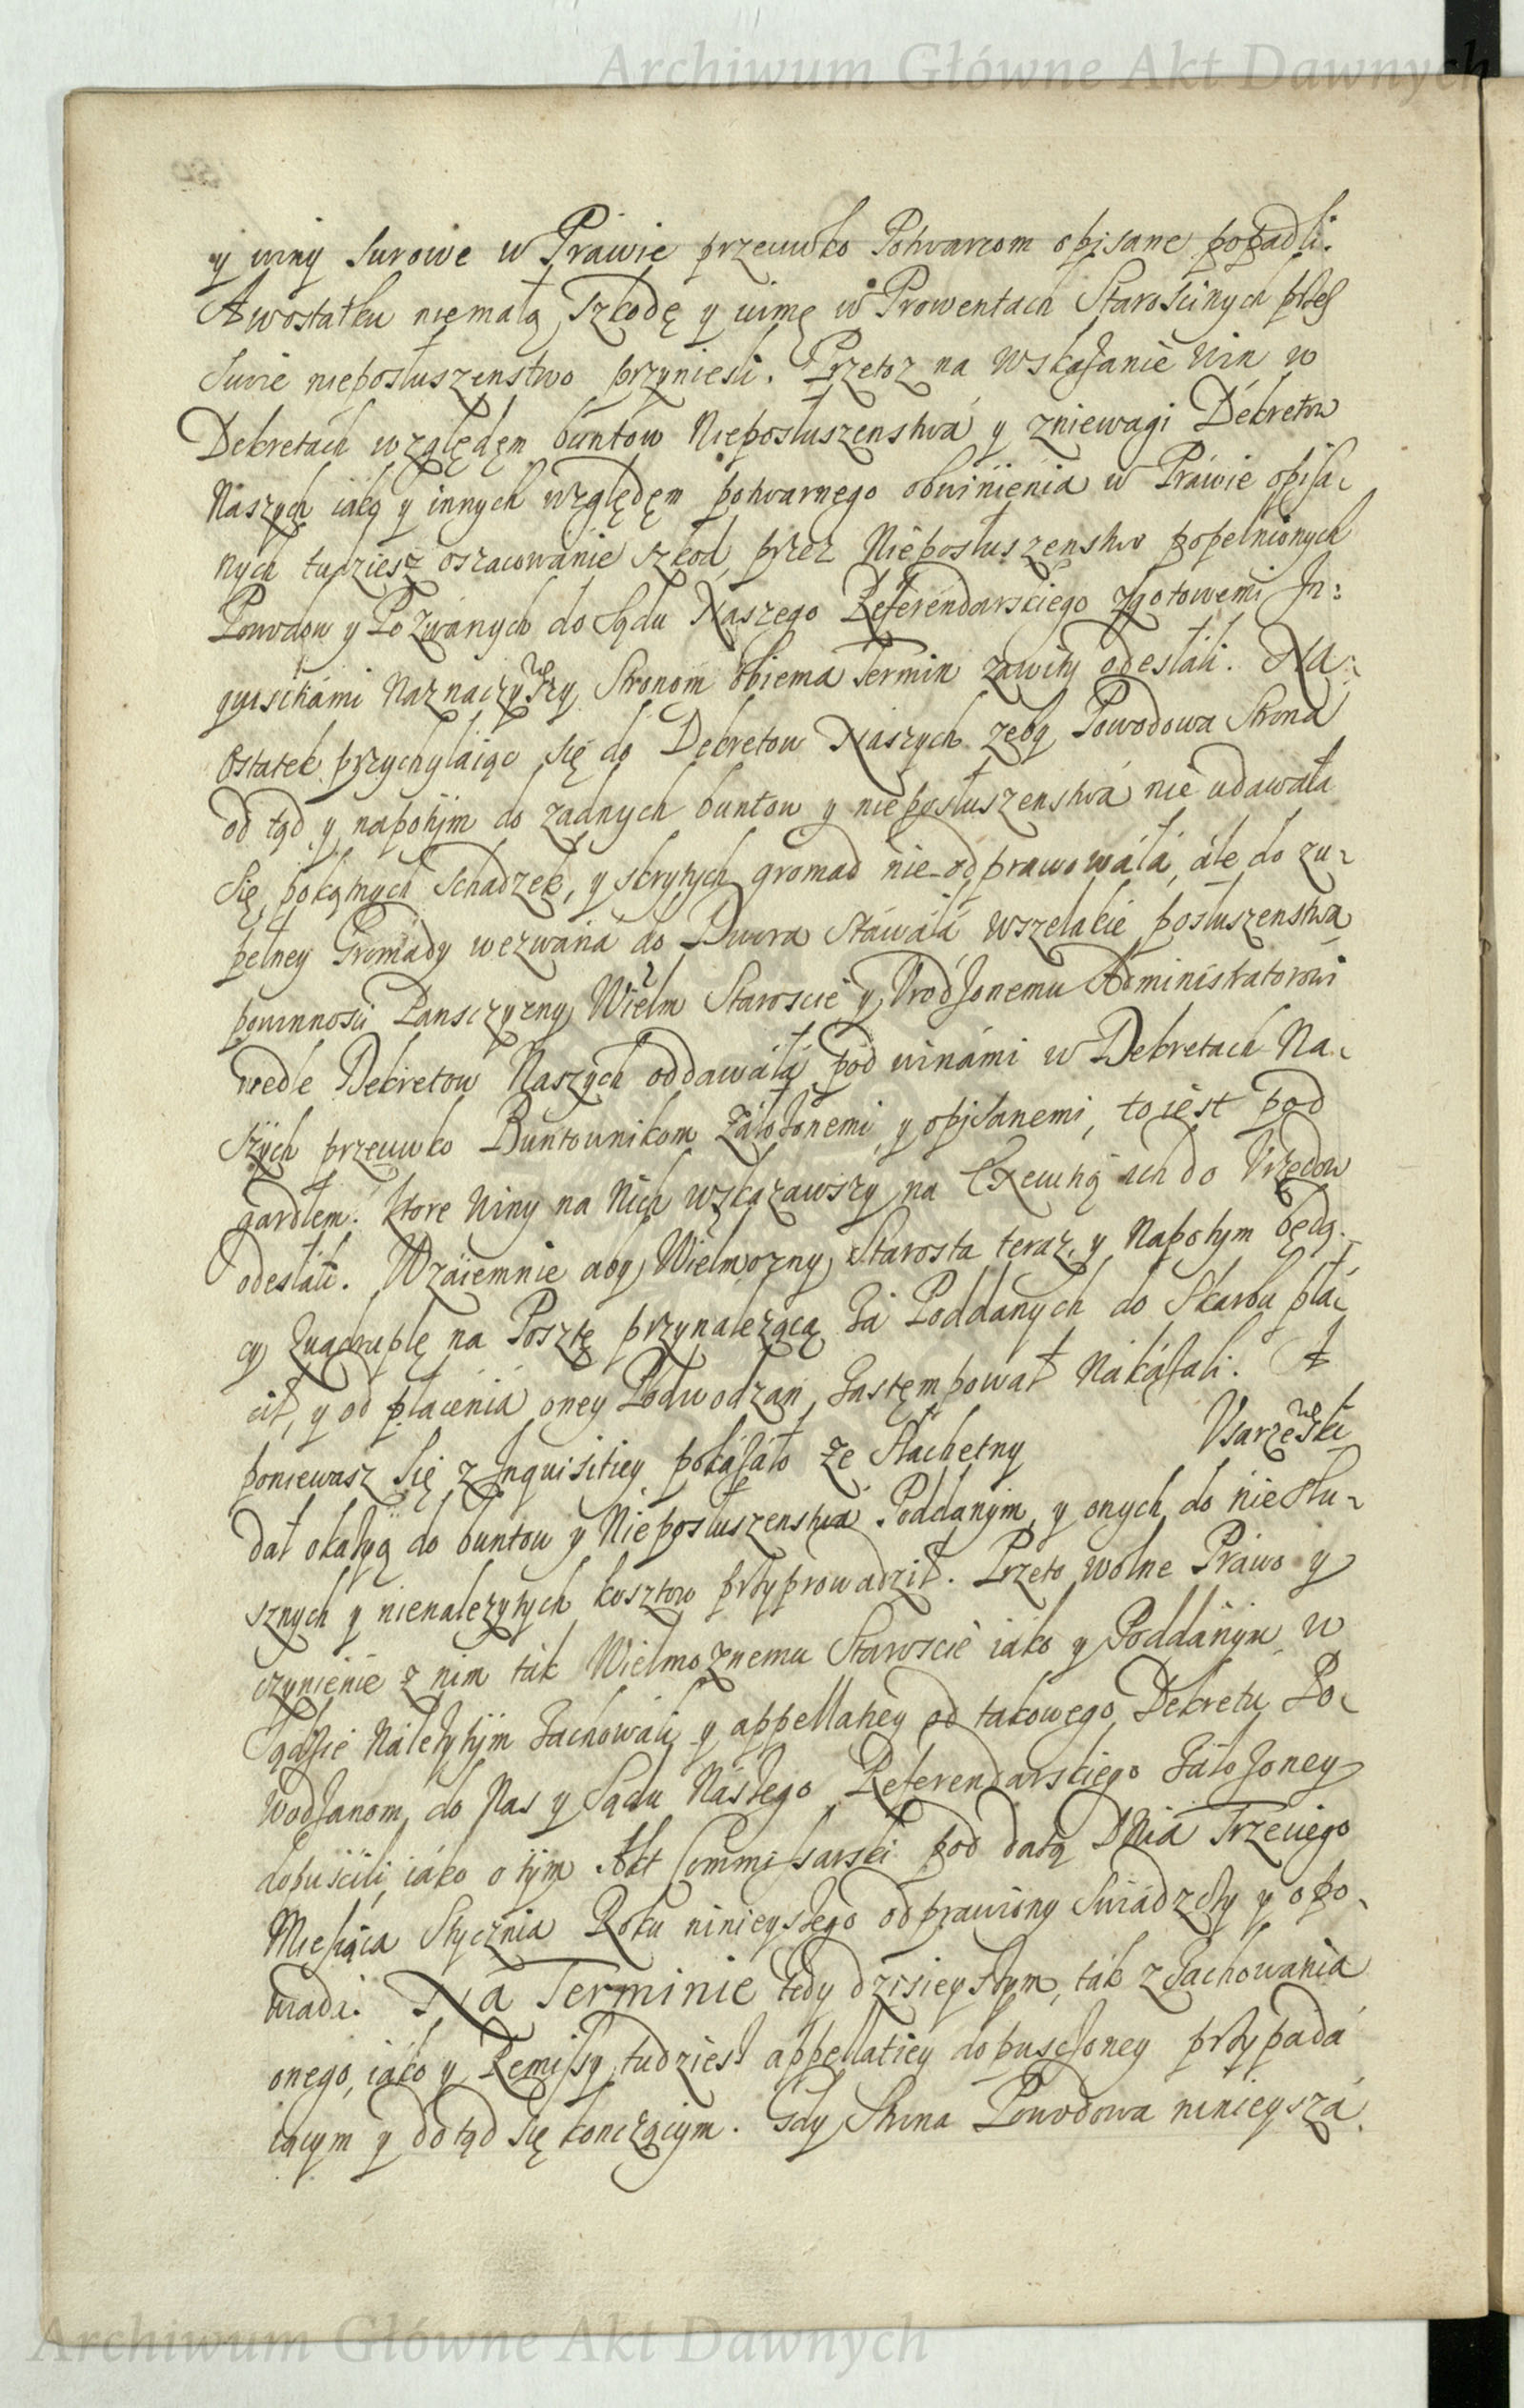 Archiwum Główne Akt Dawnych
y winy surowe w Prawie przeciwko Potwarcom opisane popadli.
A wostatku niemałą szkodę y uimę w Prowentach Starościnych przez
swie nieposłuszenstwo przyniesli. Przetoz na wskazanie win w
Dekretach względem buntow Nieposłuszenstwa y zniewagi Dekretow
Naszych iako y innych względęm potwarnego obwinienia w Prawie opisa-
nych tudziesz oszacowanie szkod, przez Nieposłuszenstwo popełnionych
Powodow y Pozwanych do Sądu Naszego Referendarskiego zgotowemi In:
quisickami Naznaczywszy Stronom obiema Termin zawity odesłali. Na-
ostatek przychylaiąc się do Dekretow Naszych zeby Powodowa Strona
od tąd y napotym do zadnych buntow y nieposłuszenstwa nie udawała
się pokątnych schadzek, y skrytych gromad nie odprawowała, ale do zu-
pełney Gromady wezwana do Dwora stawała wszelakie posłuszenstwa
powinnosci Panszczyzny Wielm Staroscie y Urodzonemu Administratorowi
wedle Dekretow Naszych oddawała pod winami w Dekretach Na-
szych przeciwko Buntownikom założonemi y opisanemi, toiest pod
gardłem. Ktore winy na Nich wskazawszy na Exekucyą ich do Urzędow
odesłali. Wzaiemnie aby Wielmozny Starosta teraz y Napotym będą-
cy Quadruplę na Posztę przynalezącą za Poddanych do Skarbu pła-
cił, y od płacenia oney Podwodzan, zastęmpował Nakazali. A
poniewasz się z Inquisitiey pokazało ze Slachetny Usarzewski
dał okazyą do buntow y Nieposłuszenstwa Poddanym, y onych do niesłu-
sznych y nienalezytych kosztow przyprowadził. Przeto wolne Prawo y
czynienie z nim tak Wielmoznemu Staroscie iako y Poddanym w
Sądzie Należytym zachowali y appellatiey od takowego Dekretu Po-
wodzanom, do Nas y Sądu Naszego Referendarskiego założoney
dopuscili, iako o tym Akt Commissarski pod datą Dnia Trzeciego
Miesiąca Stycznia Roku ninieyszego odprawiony swiadzczy y opo-
wiada. Na Terminie tedy dzisieyszym, tak z zachowania
onego, iako y Remissy tudziesz appellatiey dopuszczoney przypada-
iącym y dotąd się konczącym. Gdy Strona Powodowa ninieysza
Archiwum Główne Akt Dawnych